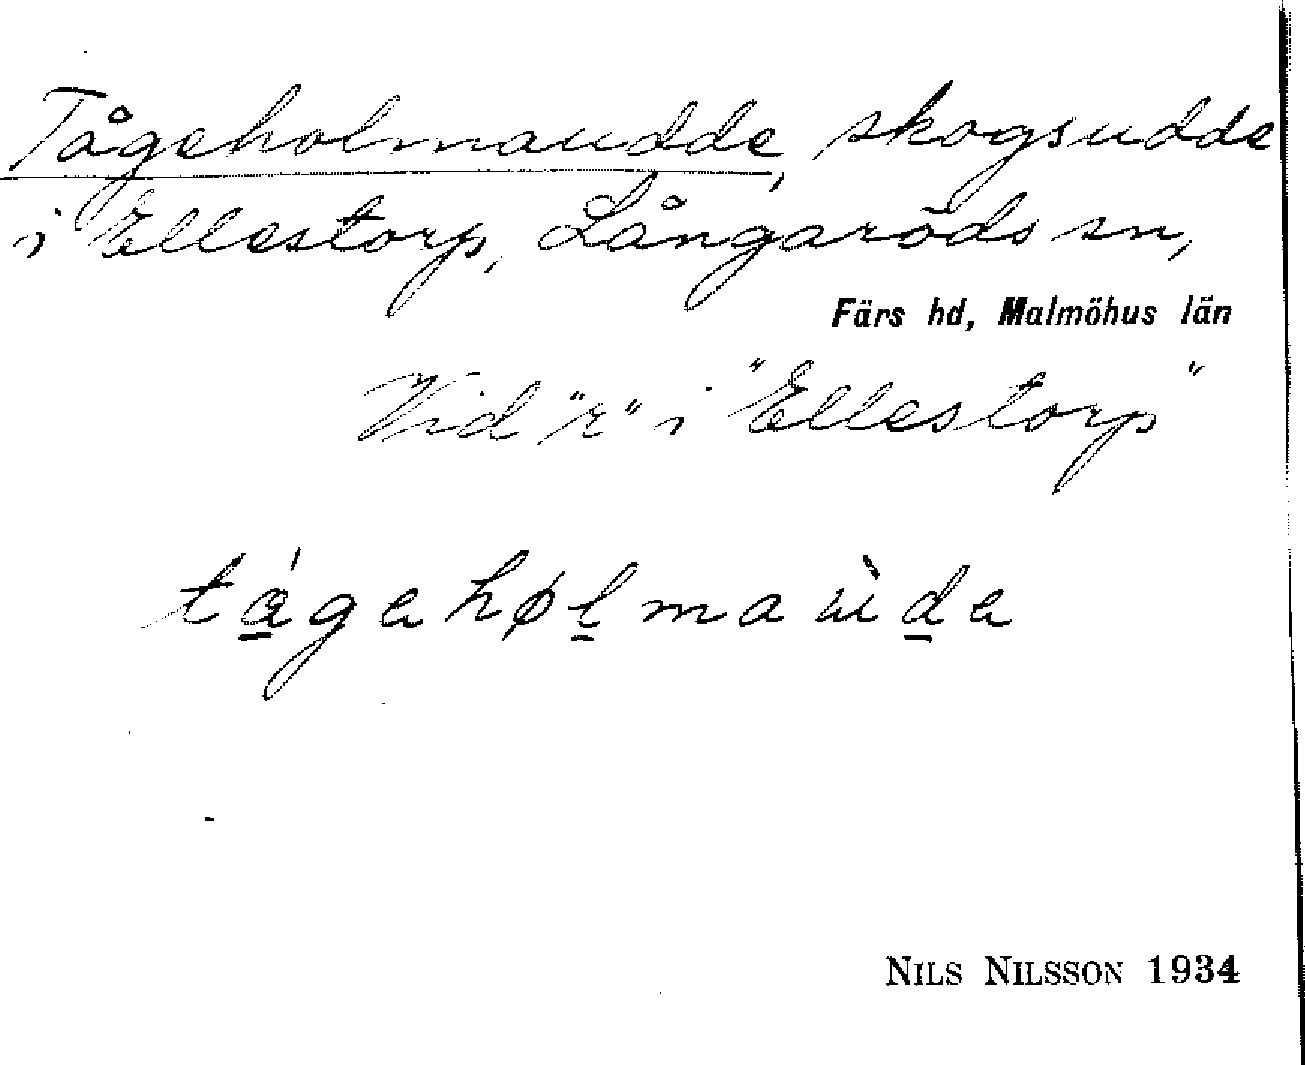 Tågeholmaudde, skogsudde
i Ellestorp, Långaröds sn,
Färs hd, Malmöhus län
Vid "r" i "Ellestorp"
tǻ̱gehøḻmaùḏe
NILS NILSSON 1934